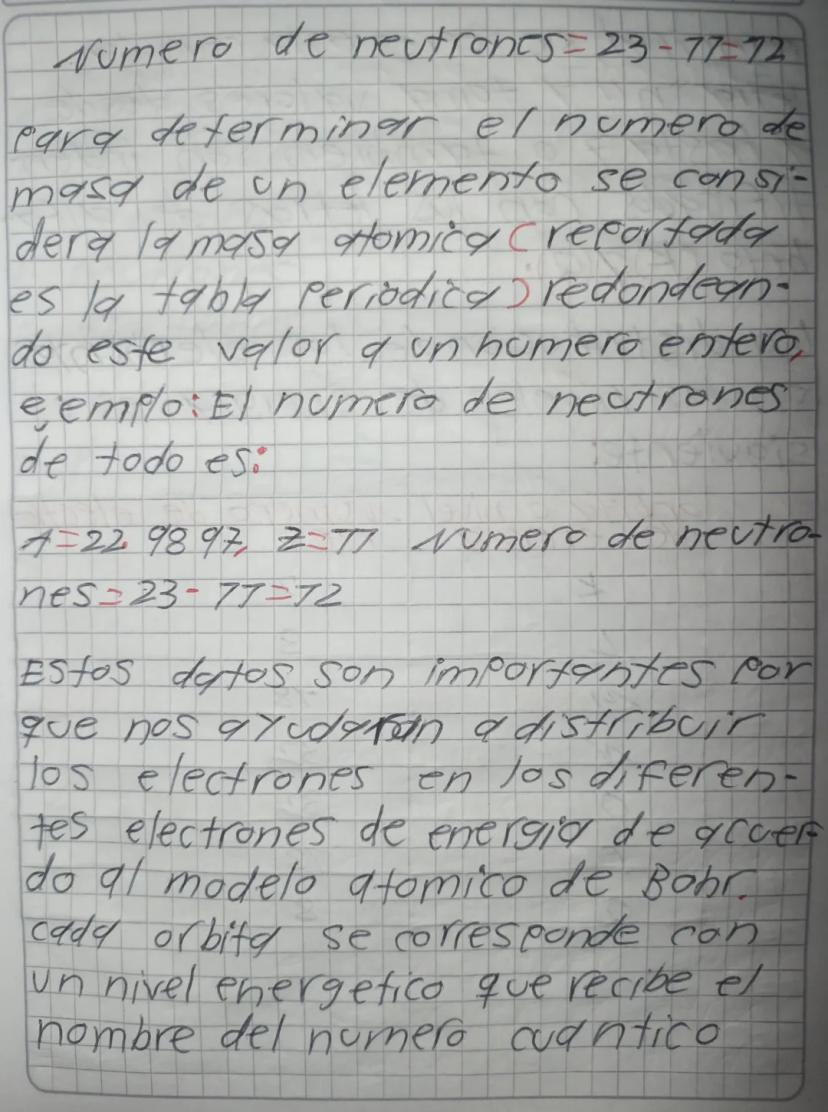 Numero de neutrones=23-11=12
para determinar el numero de
masa de un elemento se consi-
dera la masa atomica (reportada
es la tabla periòdica) redondean-
do este valor a un numero entero,
ejemplo: El numero de neutrones
de todo es:
A=22.9897, Z=11 Numero de neutro-
nes=23-11=12
Estos datos son importantes por
que nos ayudaran a distribuir
los electrones en los diferen-
tes electrones de energia de acuer-
do al modelo atomico de Bohr.
cada orbita se corresponde con
un nivel energetico que recibe el
nombre del numero cuantico